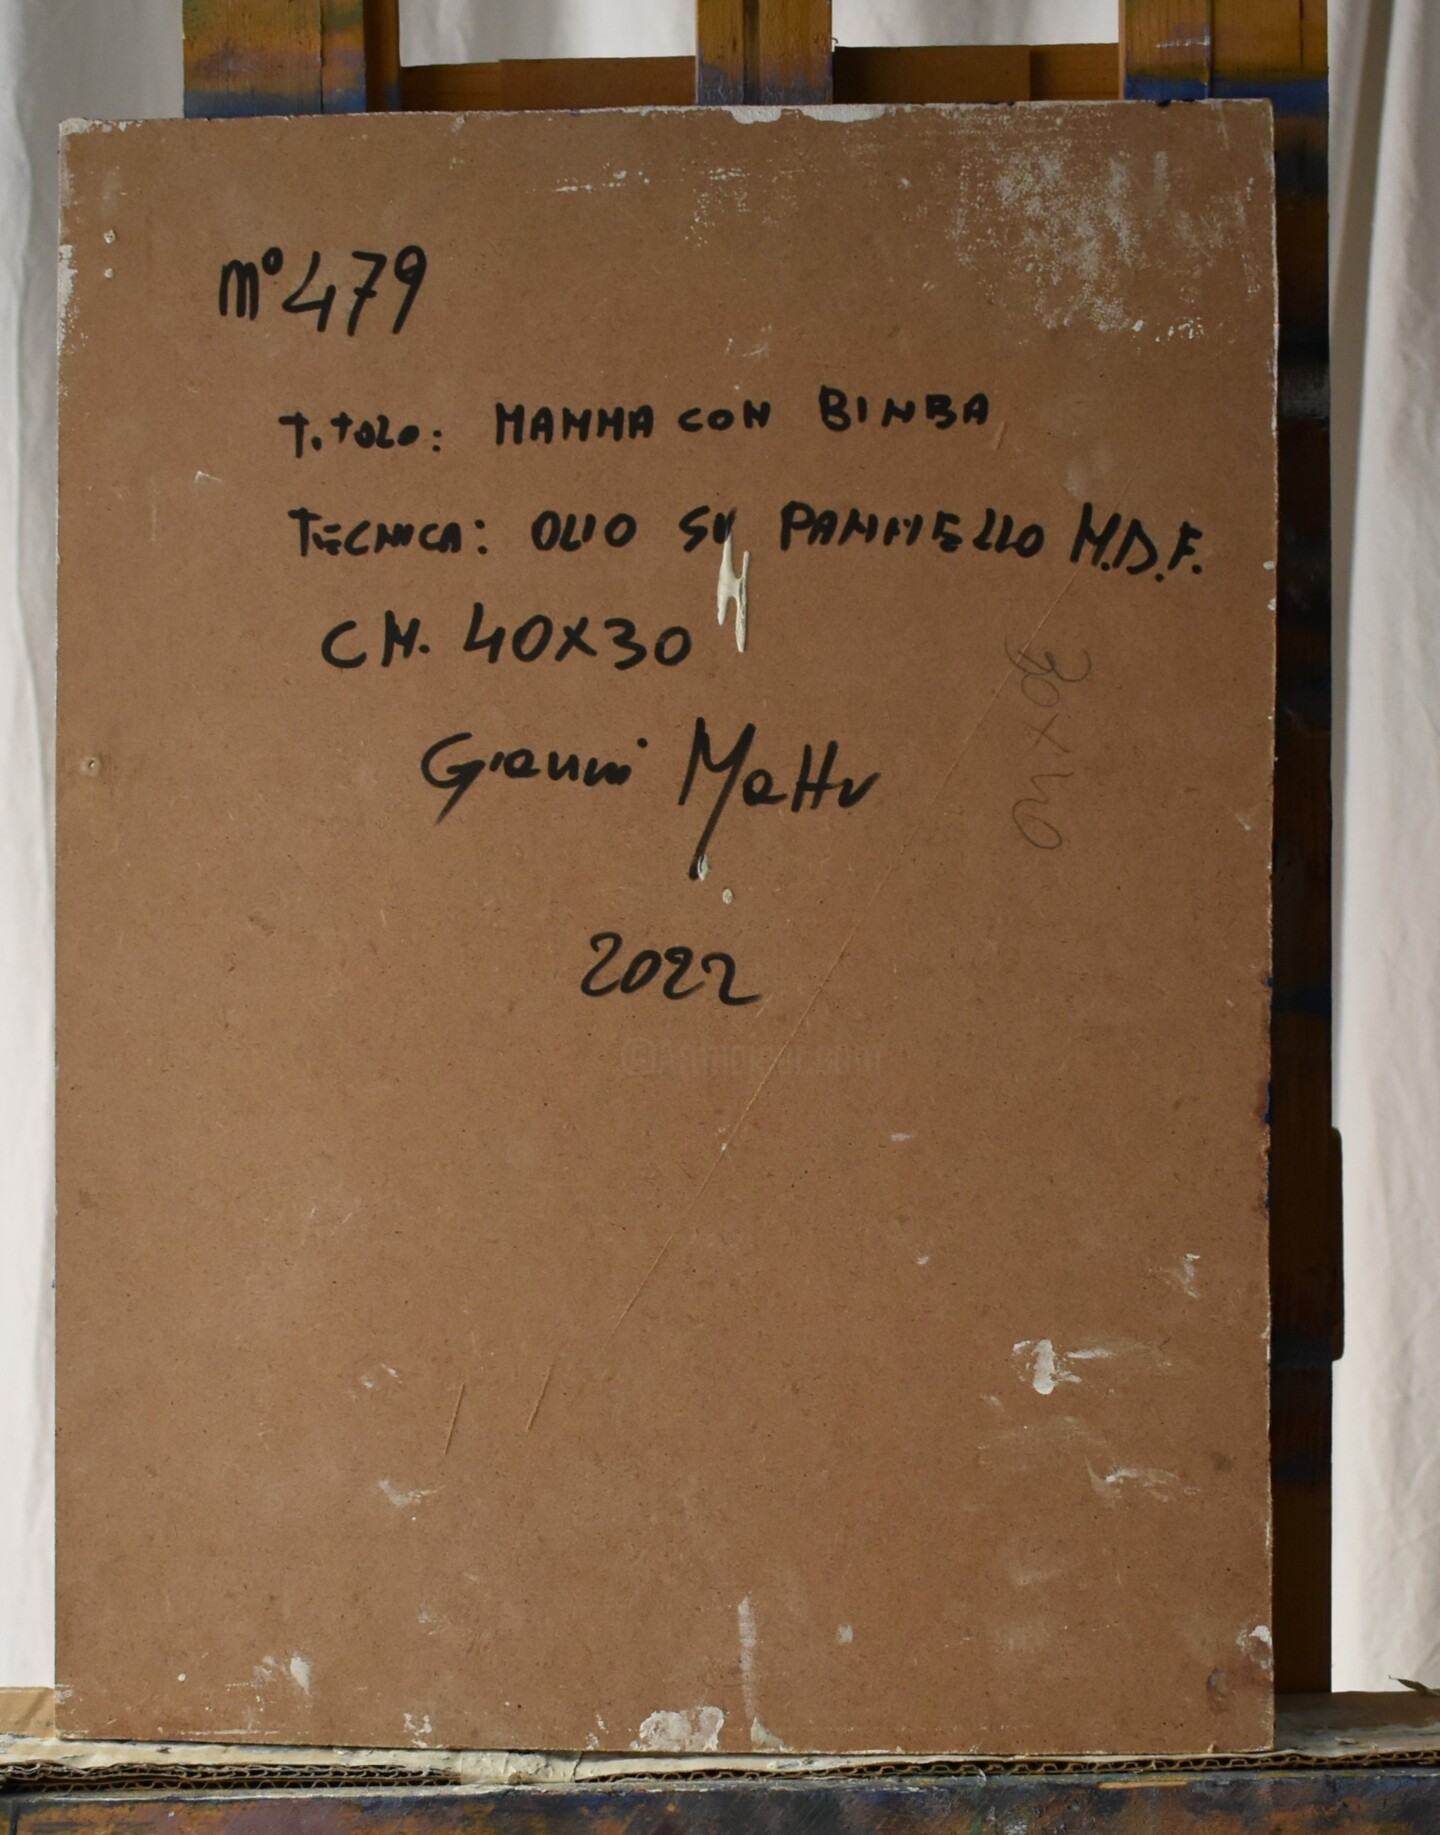 n° 479
Titolo: MAMMA CON BIMBA
TECNICA: OLIO SU PANNELLO M.D.F.
CM. 40X30
30x40
Gianni Mattu
2022
©Artmajeur.com